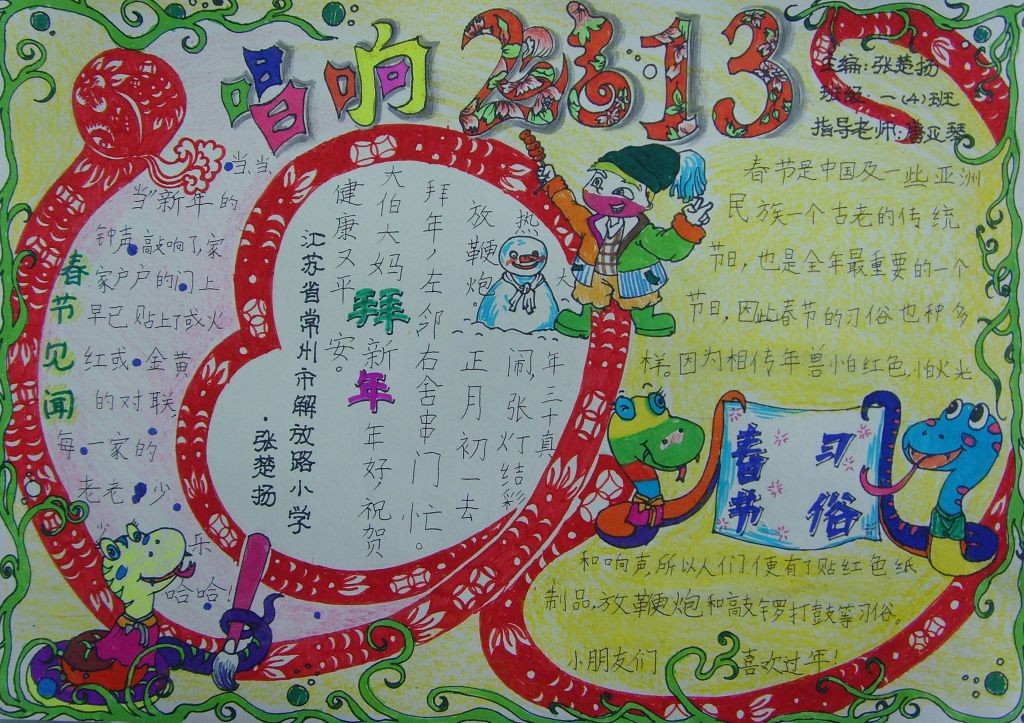 唱响2013
主编:张楚扬
班级:一(4)班
指导老师:唐亚琴
春节见闻
当、当、
当"新年的
钟声敲响了,家
家户户的门上
早已贴上了或火
红或金黄
的对联
每一家的
老老少
少
乐
哈哈!
热
闹,张灯结彩
放鞭炮。
正月初一去
拜年,左邻右舍串门忙。
大伯大妈
拜年
新年好,祝贺
健康又平安。
大年三十真
江苏省常州市解放路小学
·张楚扬
春节是中国及一些亚洲
民族一个古老的传统
节日,也是全年最重要的一个
节日,因此春节的习俗也种多
样。因为相传年兽怕红色,怕火光
春节 习俗
和响声,所以人们便有了贴红色纸
制品、放鞭炮和敲锣打鼓等习俗。
小朋友们 喜欢过年!